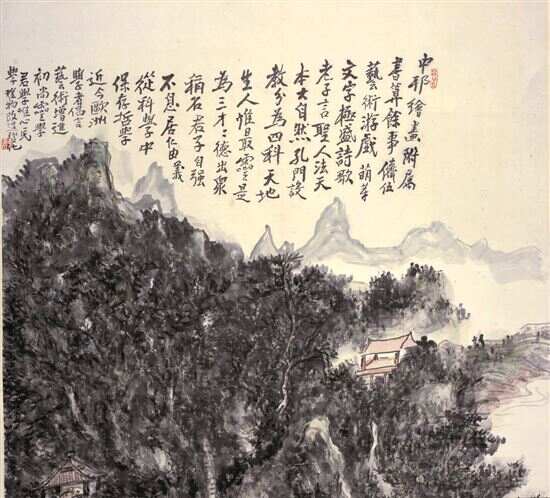 中邦繪畫附屬
書算餘事儕伍
藝術游戲萌芽
文字極盛詩歌
老子言聖人法天
本大自然孔門設
教分為四科天地
生人惟最靈是
為三才〻德出衆
稱君子自強
不息居仁由義
從科學中
保存哲學
近今歐洲
學者倡言
藝術增進
初尚靈學
君學民
學物